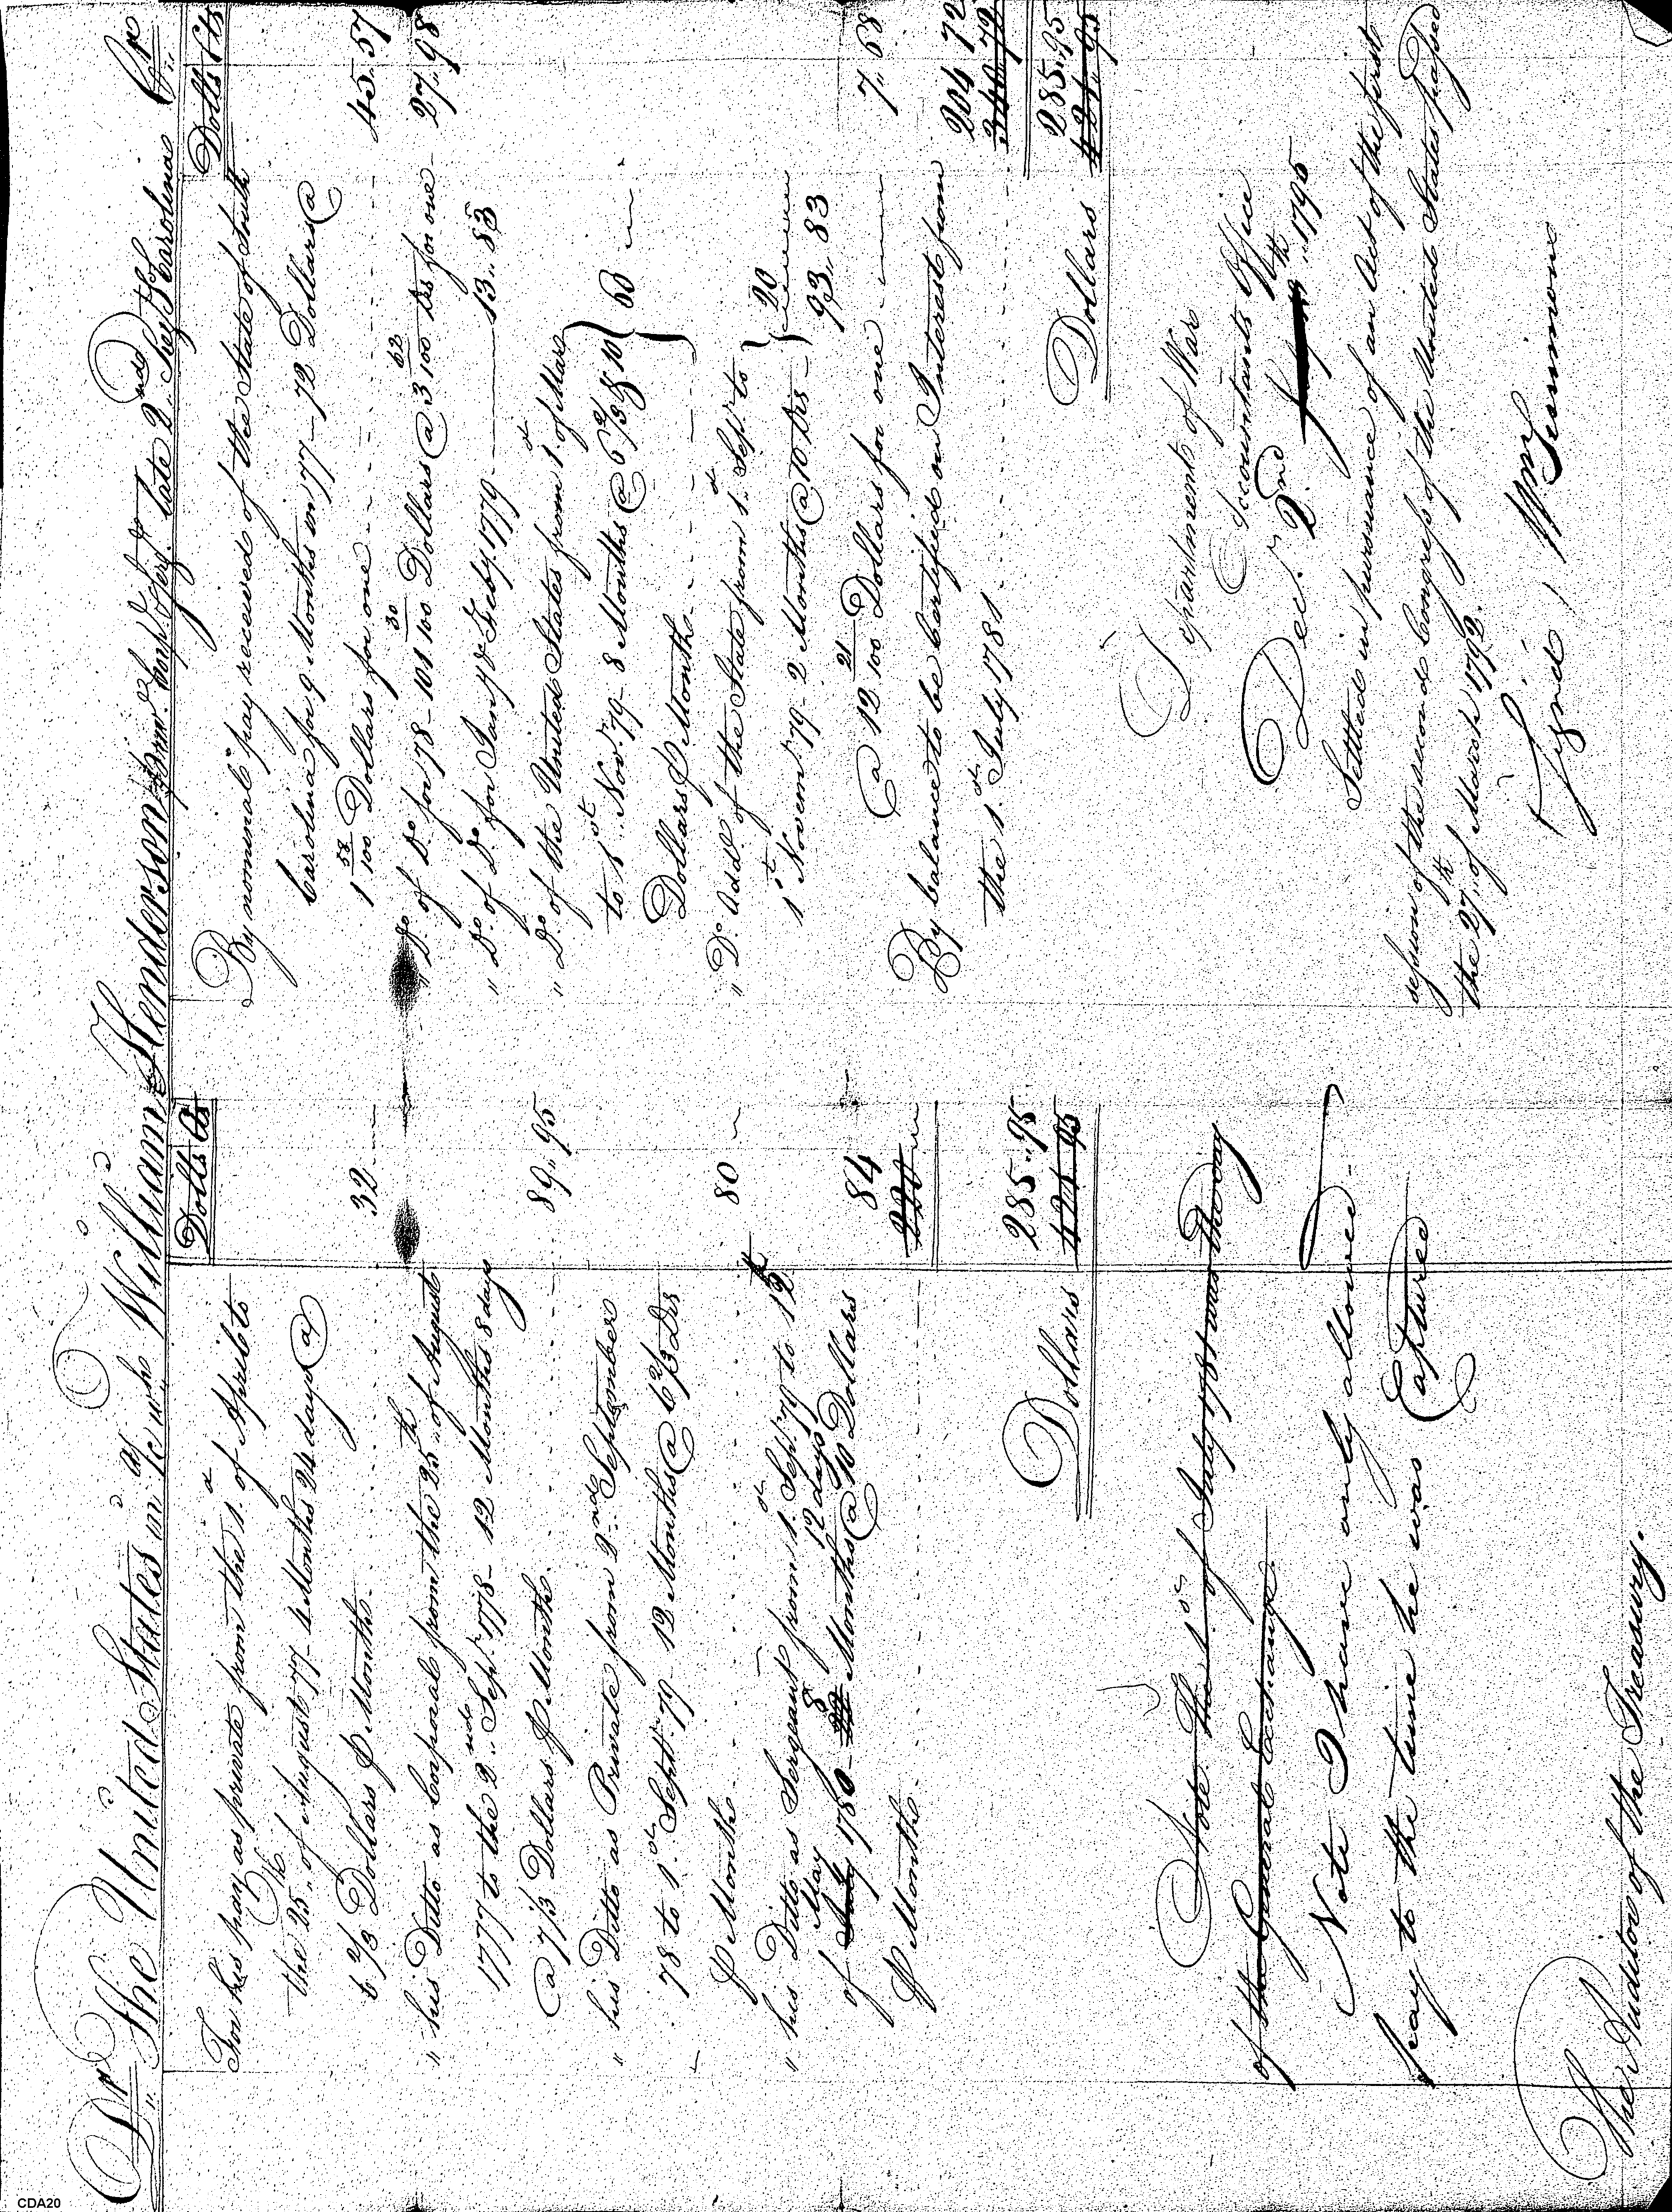 Dr. The United States in a/c wh. William Henderson Prv. Corpl. & Serj. late 2nd So. Carolina Cr.
Dolls Cts
For his pay as private from the 1st of April to
the 25th of August 77- 4 Months 24 days @
6 2/3 Dollars ⅌ Month - 32
" his Ditto as Corporal from the 25th of August
1777 to the 2nd Sepr. 1778- 12 Months 8 days
@ 7 1/3 Dollars ⅌ Month. 89,, 95
" his Ditto as Private from 2nd September
78 to 1st Sept. 79- 12 Months @ 6 2/3 Drs
⅌ Month - 80
" his Ditto as Sergeant from 1st Sept. 79 to 12th
of July May 1780- 8 Months 12 days @ 10 Dollars
⅌ Month - 84
220
285,,95
Dollars 421 95
Note. The 1st of July 1781 was the day
of the General Exchange.
Note I have only allowed
pay to the time he was
Captured
The Auditor of the Treasury.
Dolls Cts
By nominal pay received of the State of South
Carolina for 9 Months in 77- 72 Dollars @
1 58/100 Dollars for one - 45..57
" Do. of Do. for 78- 101 30/100 Dollars @ 3 62/100 Drs for one - 27,,98
" Do. of Do. for Jany. & Feby. 1779 - 13,,83
" Do. of the United States from 1st of Mar
to 1st Nov. 79- 8 Months @ 6 2/3 & 10 60
Dollars ⅌ Month -
" Do. Addl. of the State from 1st Sept. to
1st Novem. 79- 2 Months @ 10 Drs - 20
93,,83
@ 12 21/100 Dollars for one 7,,68
By balance to be Certified on Interest from
the 1st July 1781 - 204 72
340,,72
285,,95
Dollars 421,,95
Department of War
Accountants Office
Decr. 2nd 1795
Settled in pursuance of an Act of the first
session of the second Congress of the United States passed
the 27th of March 1792.
Signed, Wm. Simmons
CDA20